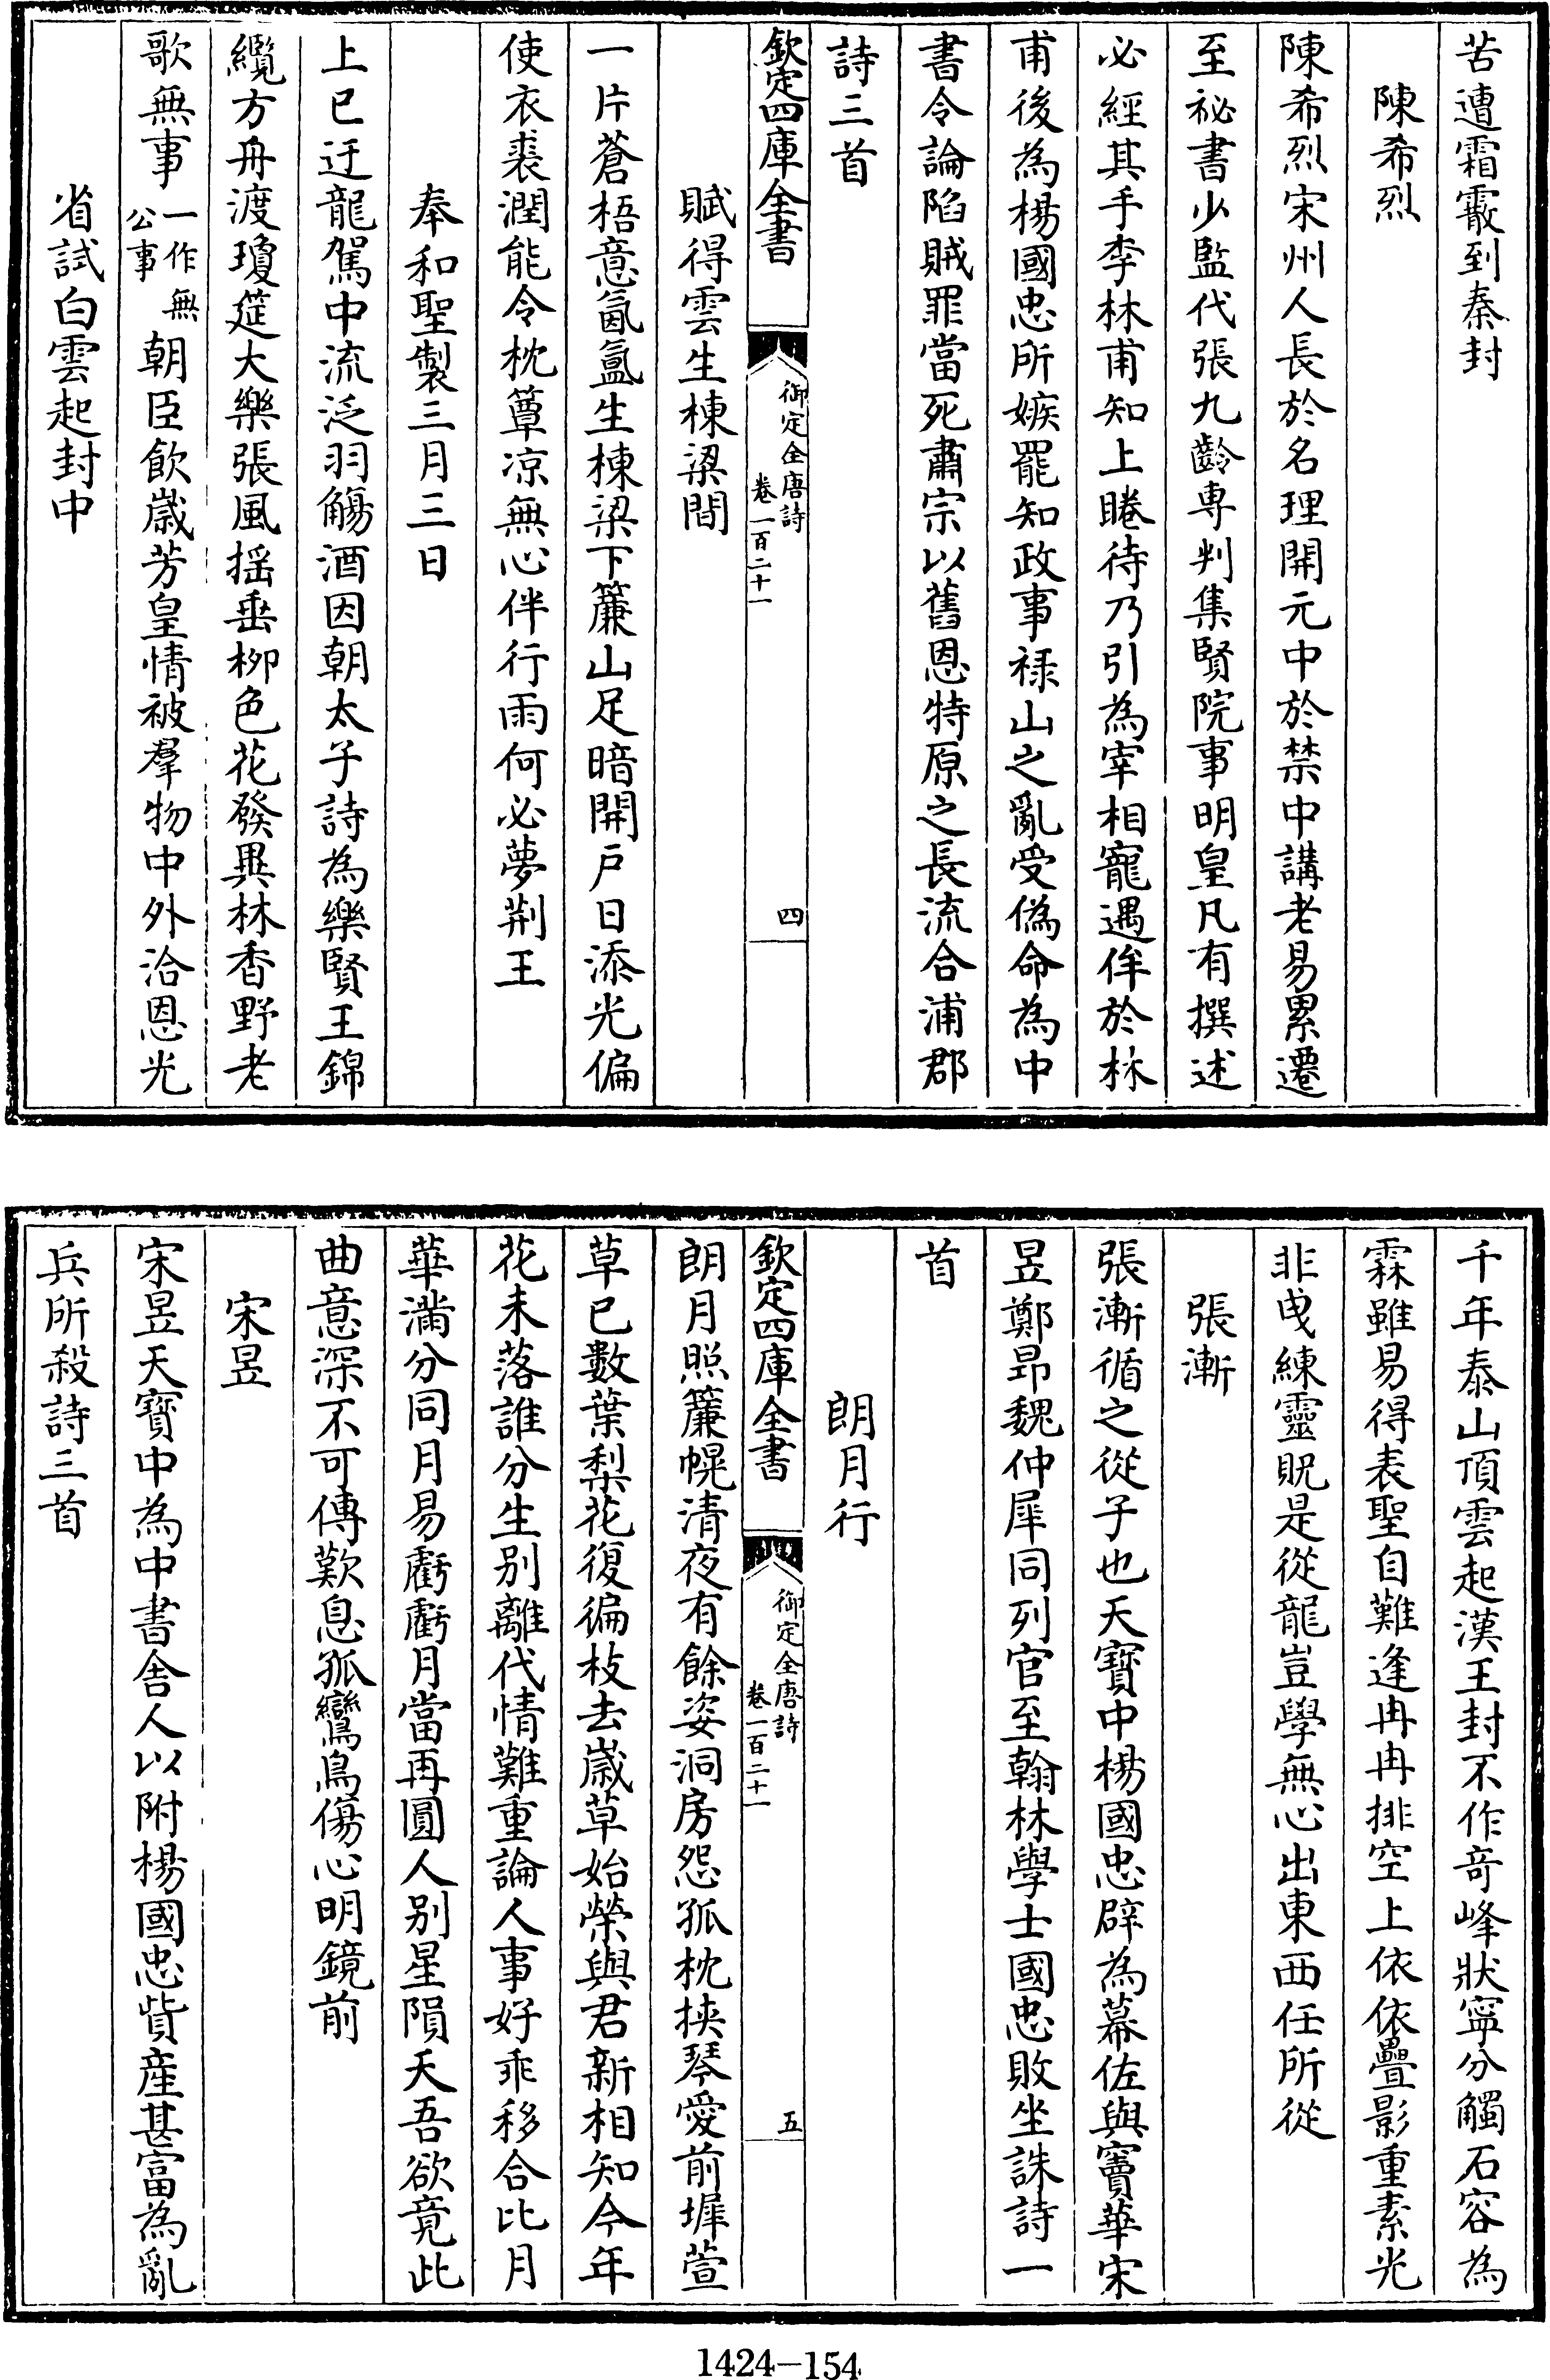 苦遭霜霰到秦封
陳希烈
陳希烈宋州人長於名理開元中於禁中講老易累遷
至祕書少監代張九齡専判集賢院事明皇凡有撰述
必經其手李林甫知上睠待乃引為宰相寵遇侔於林
甫後為楊國忠所嫉罷知政事禄山之亂受偽命為中
書令論陷賊罪當死肅宗以舊恩特原之長流合浦郡
詩三首
欽定四庫全書
御定全唐詩
卷一百二十一
四
賦得雲生棟梁間
一片蒼梧意氤氲生棟梁下簾山足暗開户日添光偏
使衣裘潤能令枕簟凉無心伴行雨何必夢荆王
奉和聖製三月三日
上巳迂龍駕中流泛羽觴酒因朝太子詩為樂賢王錦
纜方舟渡瓊筵大樂張風揺垂柳色花發異林香野老
歌無事一作無公事朝臣飲嵗芳皇情被羣物中外洽恩光
省試白雲起封中
千年泰山頂雲起漢王封不作竒峰狀寧分觸石容為
霖雖易得表聖自難逢冉冉排空上依依疊影重素光
非曳練靈貺是從龍豈學無心出東西任所從
張漸
張漸循之從子也天寶中楊國忠辟為幕佐與竇華宋
昱鄭昂魏仲犀同列官至翰林學士國忠敗坐誅詩一
首
朗月行
欽定四庫全書
御定全唐詩
卷一百二十一
五
朗月照簾幌清夜有餘姿洞房怨孤枕挾琴愛前墀萱
草已數葉梨花復徧枝去嵗草始榮與君新相知今年
花未落誰分生别離代情難重論人事好乖移合比月
華滿分同月易虧虧月當再圓人别星隕天吾欲竟此
曲意深不可傳歎息孤鸞鳥傷心明鏡前
宋昱
宋昱天寶中為中書舍人以附楊國忠貲産甚富為亂
兵所殺詩三首
1424—154